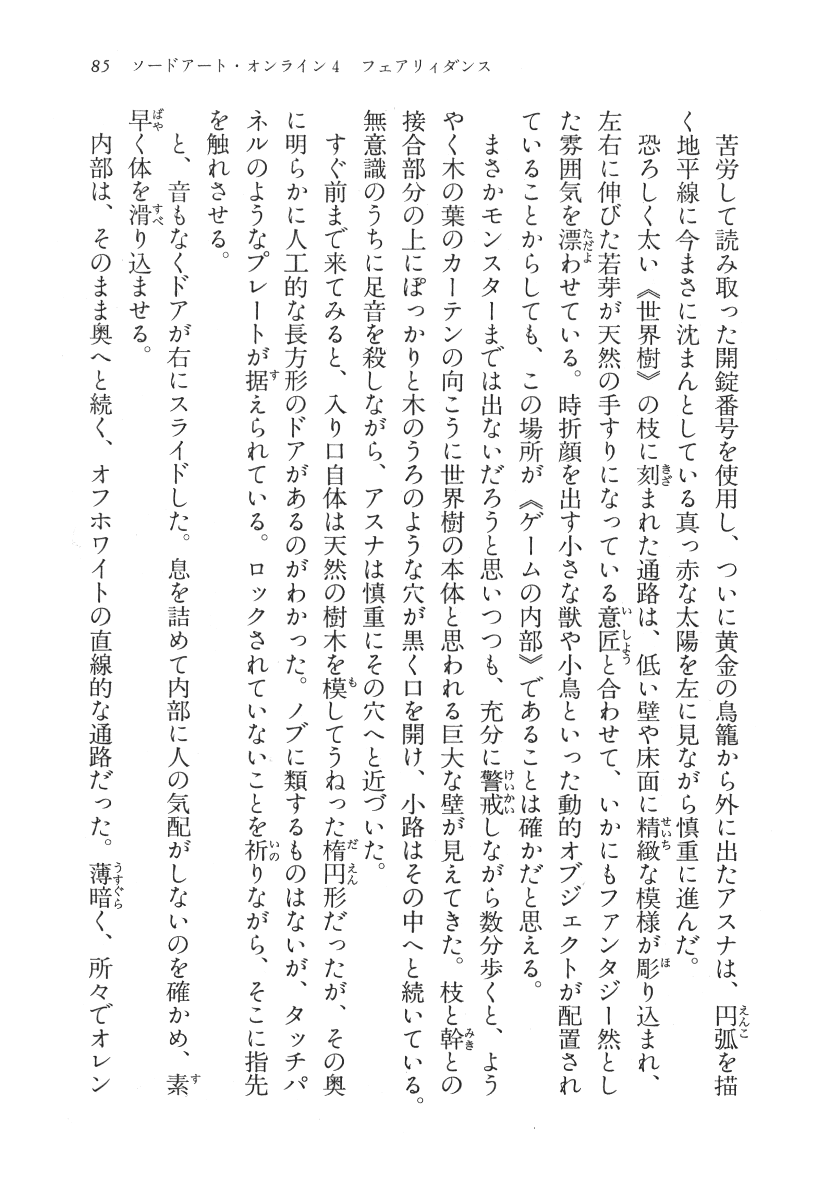 85　ソードアート・オンライン4　フェアリィダンス
苦労して読み取った開錠番号を使用し、ついに黄金の鳥籠から外に出たアスナは、円弧を描
く地平線に今まさに沈まんとしている真っ赤な太陽を左に見ながら慎重に進んだ。
恐ろしく太い《世界樹》の枝に刻まれた通路は、低い壁や床面に精緻な模様が彫り込まれ、
左右に伸びた若芽が天然の手すりになっている意匠と合わせて、いかにもファンタジー然とし
た雰囲気を漂わせている。時折顔を出す小さな獣や小鳥といった動的オブジェクトが配置され
ていることからしても、この場所が《ゲームの内部》であることは確かだと思える。
まさかモンスターまでは出ないだろうと思いつつも、充分に警戒しながら数分歩くと、よう
やく木の葉のカーテンの向こうに世界樹の本体と思われる巨大な壁が見えてきた。枝と幹との
接合部分の上にぽっかりと木のうろのような穴が黒く口を開け、小路はその中へと続いている。
無意識のうちに足音を殺しながら、アスナは慎重にその穴へと近づいた。
すぐ前まで来てみると、入り口自体は天然の樹木を模してうねった楕円形だったが、その奥
に明らかに人工的な長方形のドアがあるのがわかった。ノブに類するものはないが、タッチパ
ネルのようなプレートが据えられている。ロックされていないことを祈りながら、そこに指先
を触れさせる。
と、音もなくドアが右にスライドした。息を詰めて内部に人の気配がしないのを確かめ、素
早く体を滑り込ませる。
内部は、そのまま奥へと続く、オフホワイトの直線的な通路だった。薄暗く、所々でオレン